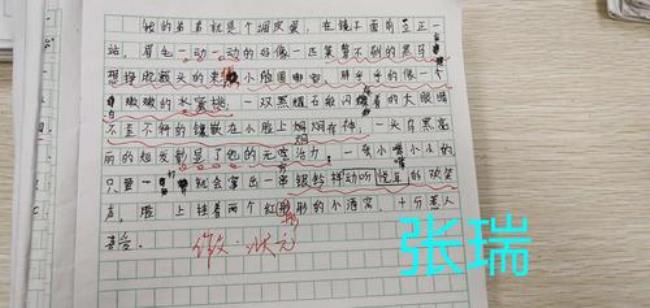 我的弟弟就是个调皮蛋,在镜子面前立正一
站,眉毛一动一动的好像一匹桀骜不驯的黑马
想挣脱额头的束缚小脸圆嘟嘟,胖乎乎的像一个
白嫩嫩的水蜜桃,一双黑耀石般闪着的大眼睛
不歪不斜的镶嵌在小脸上炯炯有神,一头乌黑亮
丽的短发彰显了他的无穷活力,一张小嘴小小的
只要一打 就会拿出一串银铃样动听悦耳的欢笑
声,脸 上挂着两个红彤彤的小酒窝,十分惹人
喜爱。
作文·状元
张瑞